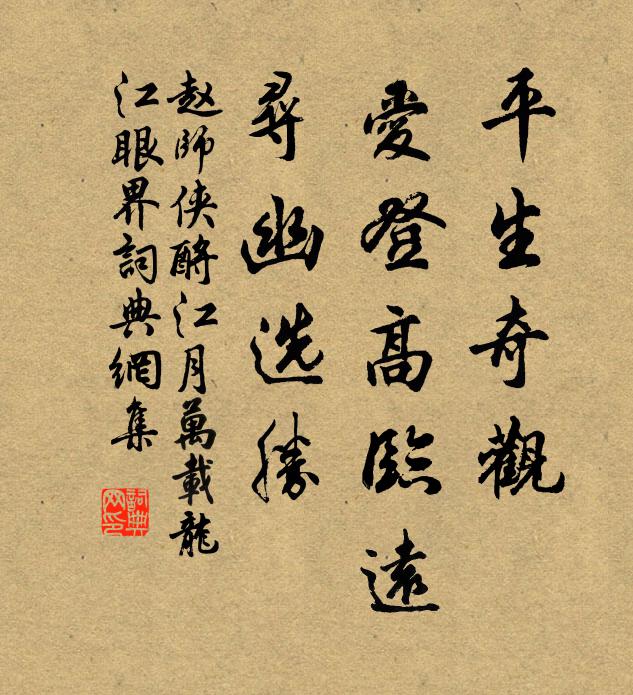 平生奇觀
愛登高臨遠
尋幽选勝
赵師俠酹江月萬載龍
江眼界詞典網集
詞典網印